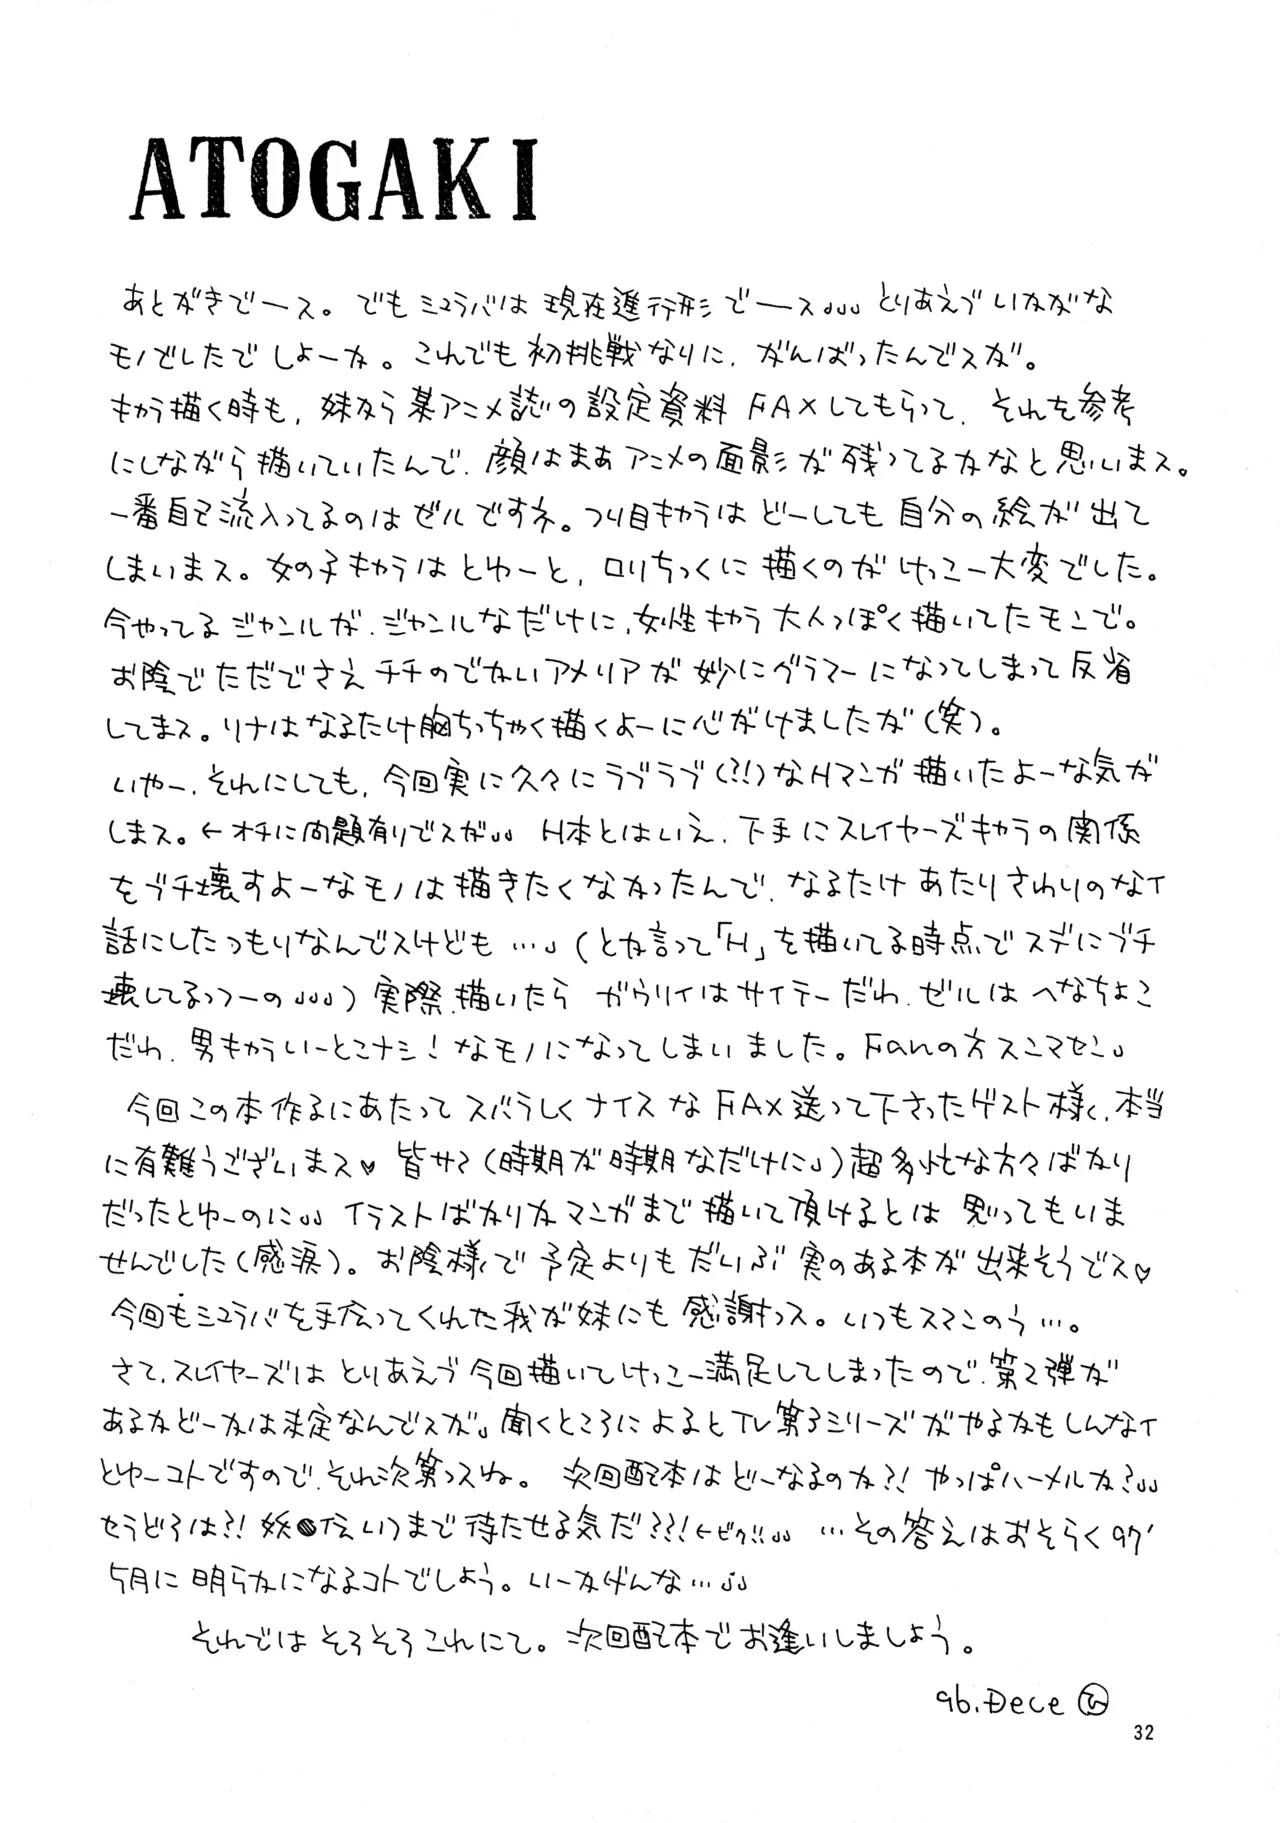 ATOGAKI
あとがきでース。でもシュラバは現在進行形でース、、、とりあえづいかがな
モノでしたでしょーか。これでも初挑戦なりに、がんばったんでスが。
キャラ描く時も、妹から某アニメ誌の設定資料FAXしてもらって、それを参考
にしながら描いていたんで、顔はまあアニメの面影が残ってるかなと思いまス。
一番自己流入ってるのはゼルですネ。つり目キャラはどーしても自分の絵が出て
しまいまス。女の子キャラはとゆーと、ロリちっくに描くのがけっこー大変でした。
今やってるジャンルが、ジャンルなだけに、女性キャラ大人っぽく描いてたモンで。
お陰でただでさえチチのでかいアメリアが妙にグラマーになってしまって反省
してまス。リナはなるたけ胸ちっちゃく描くよーに心がけましたが(笑)。
いやー、それにしても、今回実に久々にラブラブ(?!)なHマンガ描いたよーな気が
しまス。←オチに問題有りでスが、、H本とはいえ、下手にスレイヤーズキャラの関係
をブチ壊すよーなモノは描きたくなかったんで、なるたけあたりさわりのなイ
話にしたつもりなんでスけども…、(とか言って「H」を描いてる時点でスデにブチ
壊してるっつーの、、、)実際、描いたらガウリイはサイテーだわ、ゼルはへなちょこ
だわ、男キャラいーとこナシ!なモノになってしまいました。Fanの方スンマセン、
今回この本作るにあたってスバらしくナイスなFAX送って下さったゲスト様く、本当
に有難うございまス♥皆サマ(時期が時期なだけに、)超多忙な方々ばかり
だったとゆーのに、、イラストばかりかマンガまで描いて頂けるとは思ってもいま
せんでした(感涙)。お陰様で予定よりもだいぶ実のある本が出来そうでス♡
今回もシュラバを手伝ってくれた我が妹にも感謝っス。いつもスマンのう…。
さて、スレイヤーズはとりあえづ今回描いてけっこー満足してしまったので、第2弾が
あるかどーかは未定なんでスが、聞くところによるとTV第3シリーズがやるかもしんなイ
とゆーコトですので、それ次第っスね。次回配本はどーなるのか?!やっぱハーメルか?、、
セラどろは?!妖●伝いつまで待たせる気だ??!←ビク!!、、…その答えはおそらく97'
5月に明らかになるコトでしょう。いーかげんな…、、
それではそろそろこれにて。次回配本でお逢いしましょう。
96.Dece ひ
32